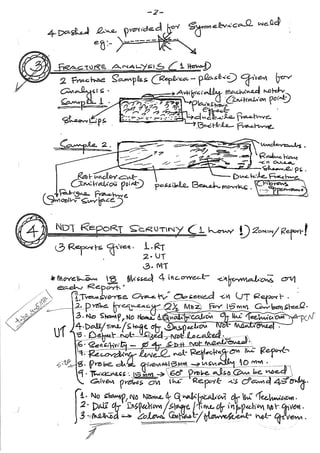 -2-
4 Dashed line provided for Symmetrical weld
eg:-
3 FRACTURE ANALYSIS (1 Hour)
2 Fracture Samples (Replica-plastic) given for
Analysis.
Artificially machined notch
(initiation point)
Sample 1.
Plain strain
Effect
Shear lips
Ductile Fracture
Brittle Fracture
Sample 2.
undercut.
Reduction
in area
Shear lips.
Ductile Fracture
(Fibrous
appearance)
Root undercut
(Initiation point)
possible Beachmarks.
Fatigue Fracture
(Smooth Surface)
4 NDT REPORT SCRUTINY (1 hour !) 20min/Report!
3 Reports Given. 1. RT
2. UT
3. MT
* More than 18 Missed & incorrect informations on
each Report.
UT
1. Transverse Crack Observed in UT Report.
2. Probe frequency - 2½ MHz For 15mm Carbon steel.
3. No Stamp, No Name & Qualification of the Technician → PCN
4. Date/time/Stage of Inspection Not mentioned.
5. Defect not Sized, Not located.
6. Sensitivity - Ø 4 SDH not mentioned.
7. Recording level not Reflecting on the Report.
8. Probe dia given 15mm - usually 10 mm.
9. Thickness: 15mm → 60° Probe also Can be need
Given probes on the Report is 0° and 45° only.
1. No Stamp, No Name & Qualification of the Technician.
2. Date of Inspection/Stage/Time of inspection not given.
3. Method → Colour Contrast/flourescent not Given.